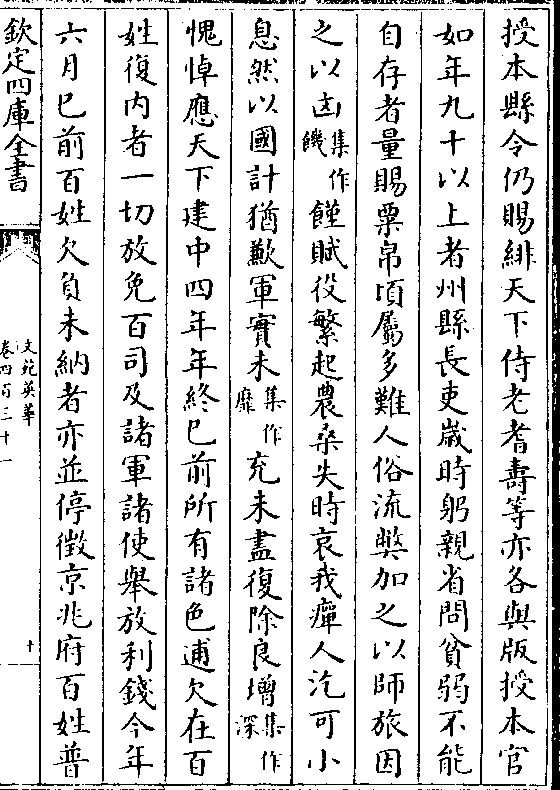 授本縣令仍賜緋天下侍老耆壽等亦各與版授本官
如年九十以上者州縣長吏歲時躬親省問貧弱不能
自存者量賜粟帛頃屬多難人俗流弊加之以師旅因
之以凶集作饑饉賦役繁起農桑失時哀我癉人汔可小
息然以國計猶歉軍實未集作靡充未盡復除良增集作深
愧悼應天下建中四年年終已前所有諸色逋欠在百
姓復内者一切放免百司及諸軍諸使舉放利錢今年
六月已前百姓欠負未納者亦並停徵京兆府百姓普
欽定四庫全書
文苑英華
卷四百三十一
十